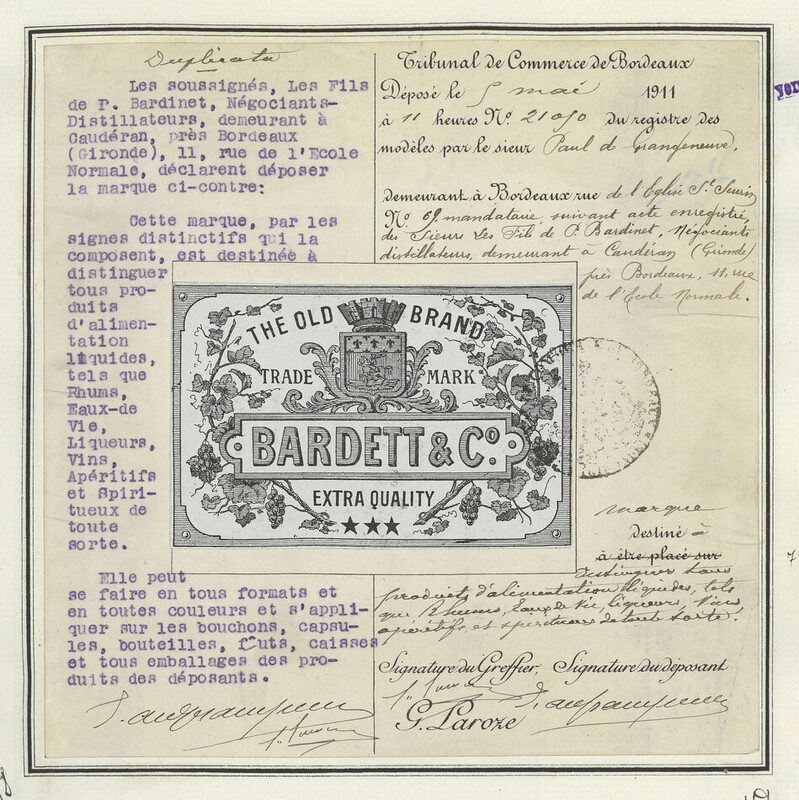 Duplicata
Les soussignés, Les Fils
de P. Bardinet, Négociants-
Distillateurs, demeurant à
Caudéran, près Bordeaux
(Gironde), 11, rue de l'Ecole
Normale, déclarent déposer
la marque ci-contre:
Cette marque, par les
signes distinctifs qui la
composent, est destinée à
distinguer
tous pro-
duits
d'alimen-
tation
liquides,
tels que
Rhums,
Eaux-de
Vie,
Liqueurs,
Vins,
Apéritifs
et Spiri-
tueux de
toute
sorte.
Elle peut
se faire en tous formats et
en toutes couleurs et s'appli-
quer sur les bouchons, capsu-
les, bouteilles, fûts, caisses
et tous emballages des pro-
duits des déposants.
THE OLD BRAND
TRADE MARK
BARDETT & Co.
EXTRA QUALITY
Tribunal de Commerce de Bordeaux
Déposé le 5 mai 1911
à 11 heures No. 21090 du registre des
modèles par le sieur Paul de Grangeneuve,
demeurant à Bordeaux rue de l'Eglise St Seurin
No. 69, mandataire, suivant acte enregistré,
des Sieurs Les Fils de P. Bardinet, Négociants
distillateurs, demeurant à Caudéran (Gironde)
près Bordeaux, 11, rue
de l'Ecole Normale.
marque
destiné à
à être placé sur
distinguer tous
produits d'alimentation liquides, tels
que Rhums, Eaux de Vie, liqueurs, Vins,
apéritifs et spiritueux de toute sorte.
Signature du Greffier, Signature du déposant
G. Laroze